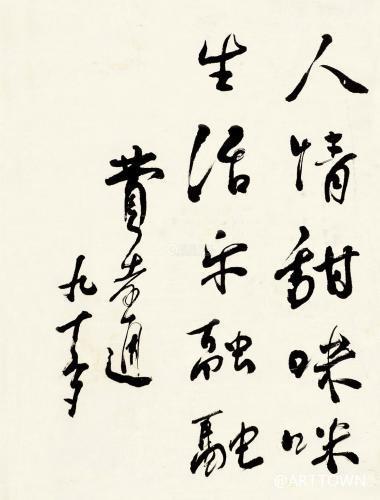 人情甜咪咪
生活乐融融
費孝通
九十
@ARTTOWN